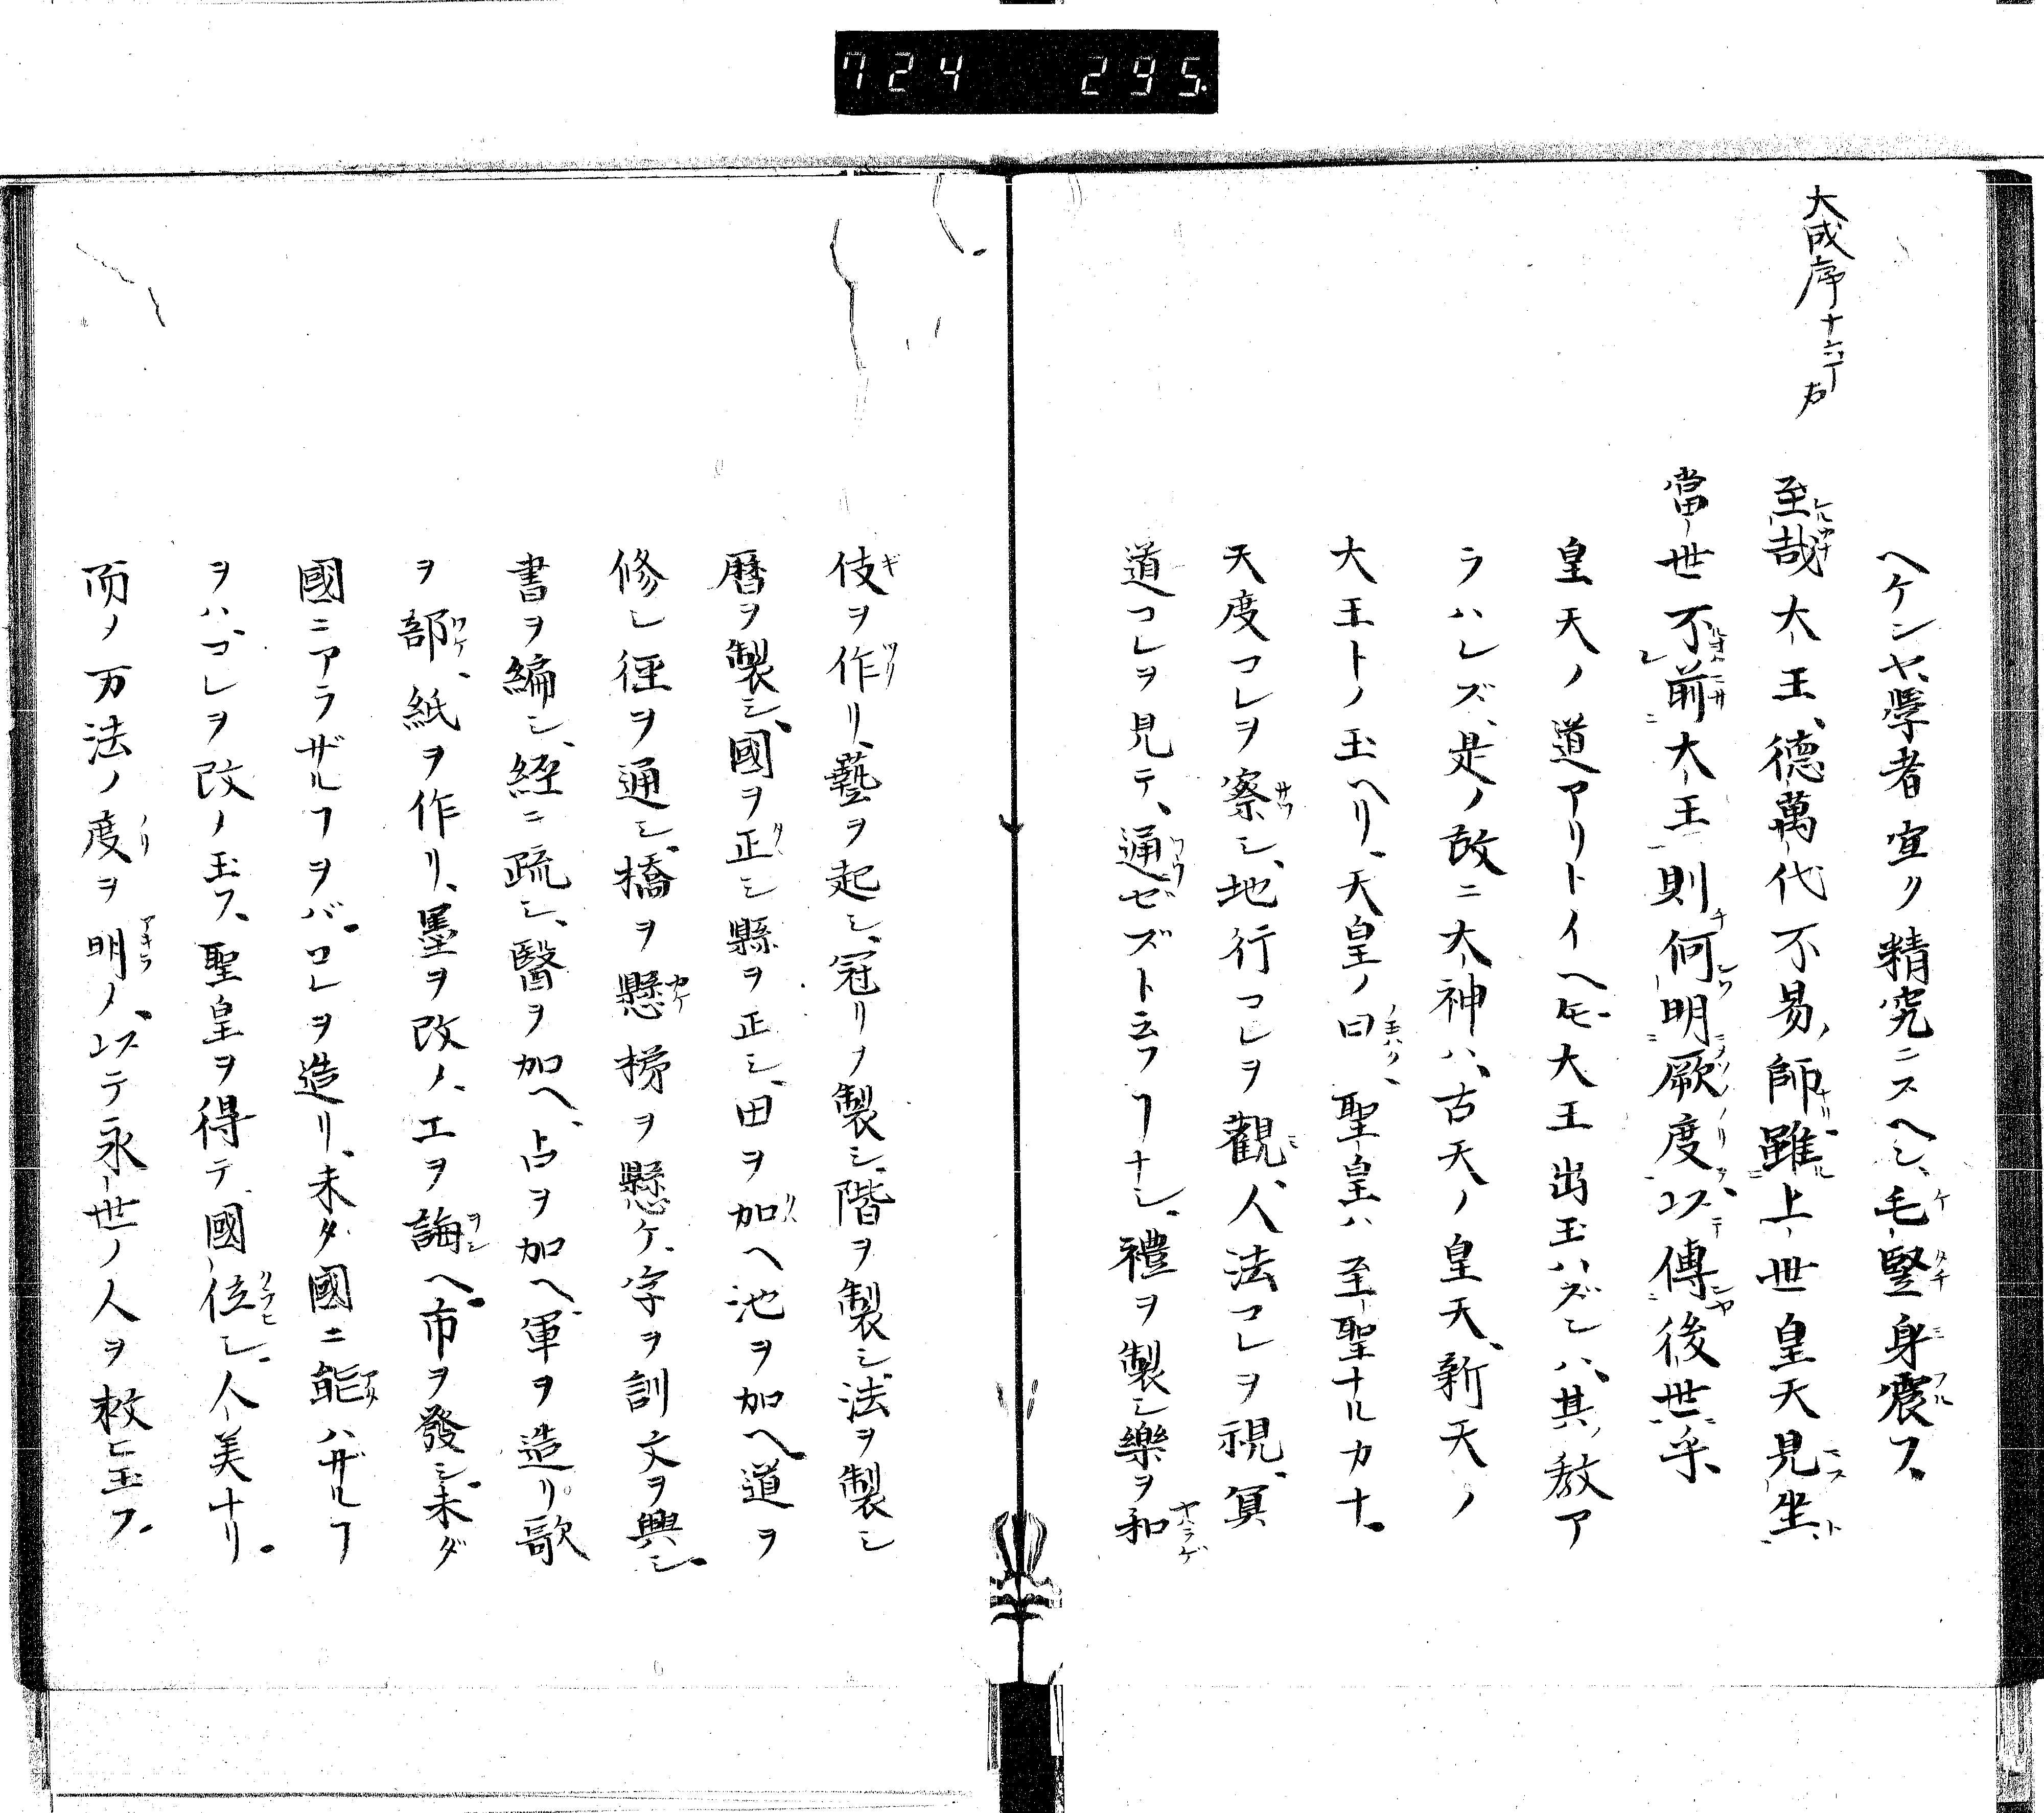 724 295
大成序十六丁右
ヘケンヤ、學者宜ク精究ニスヘシ、毛竪身震フ、
至哉大王、德萬代不易師、雖上世皇天見坐、
當世不前大王則何明厥度以テ傳後世乎、
皇天ノ道アリトイヘ𪜈大王出玉ハズンハ、其ノ教ア
ラハレズ、是ノ故ニ大神ハ、古天ノ皇天、新天ノ
大王トノ玉ヘリ、天皇ノ曰、聖皇ハ至聖ナルカナ、
天度コレヲ察シ、地行コレヲ觀、人法コレヲ視、冥
道コレヲ見テ、通ゼズト云フヿナシ、禮ヲ製シ樂ヲ和
伎ヲ作リ、藝ヲ起シ、冠リヲ製シ、階ヲ製シ、法ヲ製シ
曆ヲ製シ、國ヲ正シ縣ヲ正シ、田ヲ加ヘ池ヲ加ヘ、道ヲ
修シ徑ヲ通シ、橋ヲ懸梯ヲ懸ケ、字ヲ訓文ヲ興シ、
書ヲ編シ、經ニ疏シ、醫ヲ加ヘ、占ヲ加ヘ、軍ヲ造リ、歌
ヲ部、紙ヲ作リ、墨ヲ改メ、工ヲ誨ヘ、市ヲ發シ、未ダ
國ニアラザルヿヲバ、コレヲ造リ、未タ國ニ能ハザルヿ
ヲハ、コレヲ改メ玉フ、聖皇ヲ得テ、國位シ、人美ナリ、
而ノ万法ノ度ヲ明メ、以テ永世ノ人ヲ救ヒ玉フ、